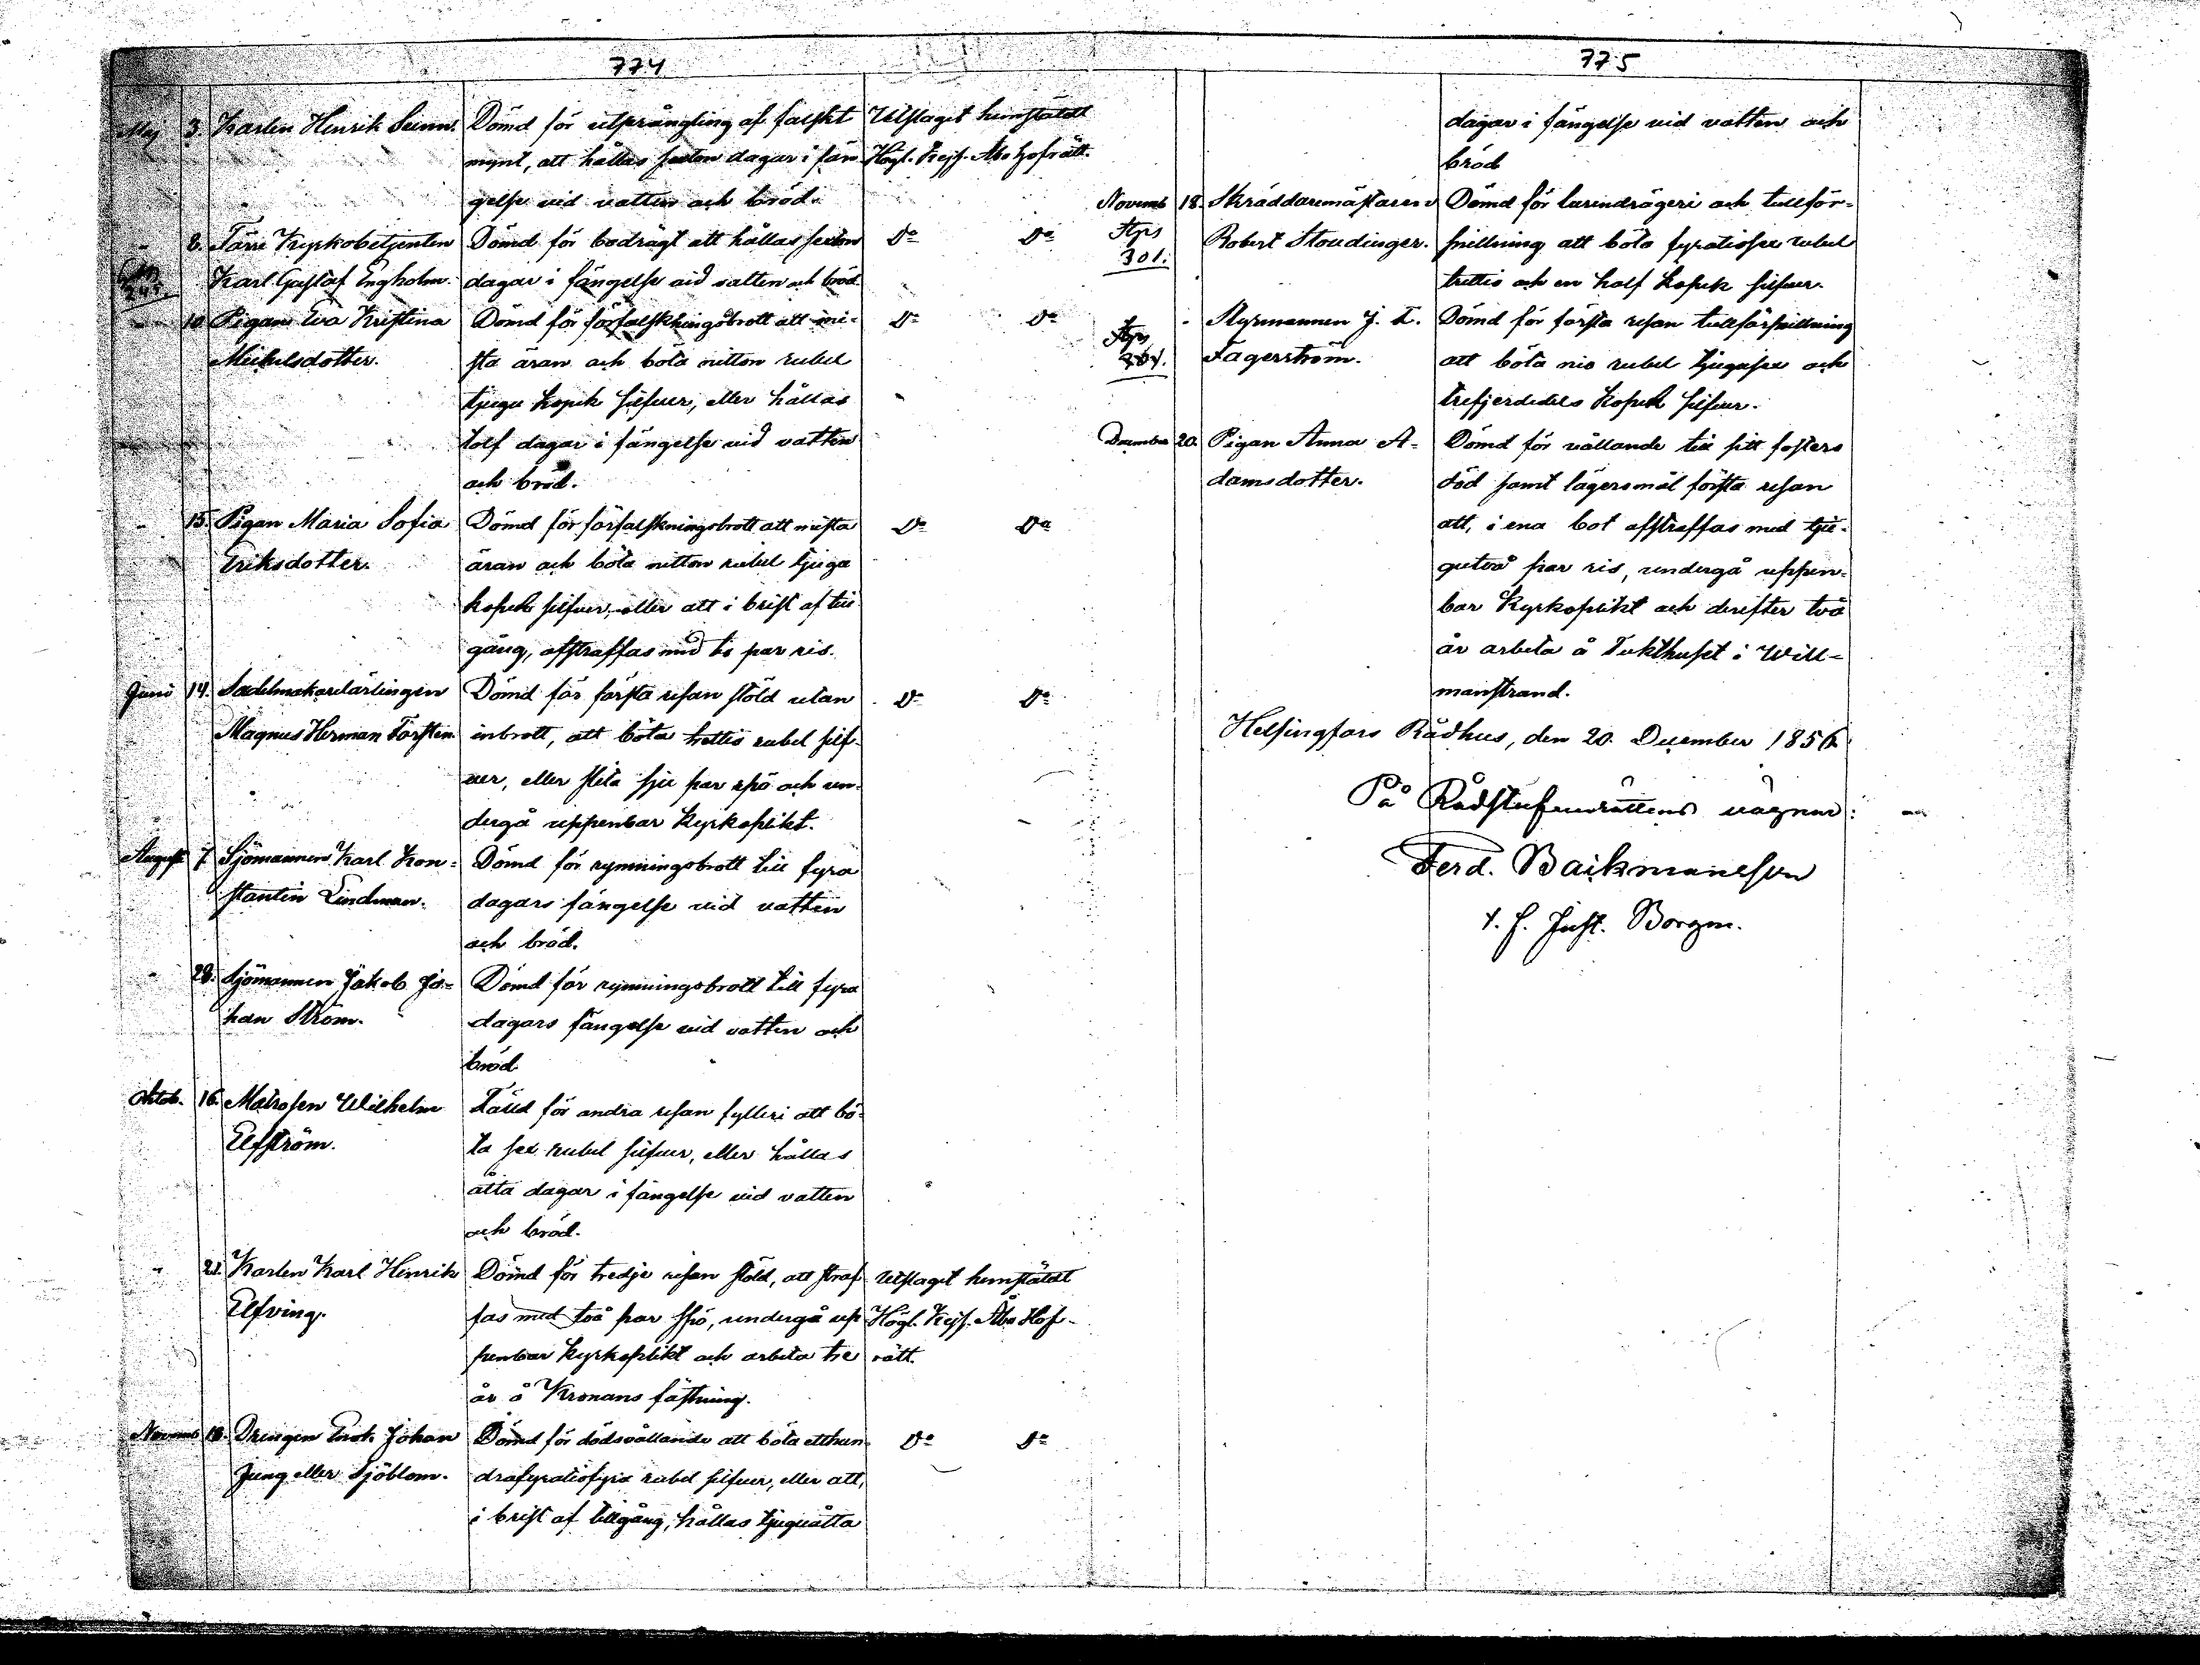 774
Maj 3. Karlen Henrik Dömd för utprångling af falskt Utslaget hemstäldt
mynt, att hållas sexton dagar i fän Högl. Kejs. Åbo Hofrätt.
gelse vid vatten och bröd.
" 8. Förre Kyrkobetjenten Dömd för bodrägt att hållas sexton Do Do
Karl Gustaf Engholm. dagar i fängelse vid vatten och bröd.
" 10. Pigan Eva Kristina Dömd för förfalskningsbrott att mi- Do Do
Mickelsdotter. sta äran och böta nitton rubel
tjugu kopek silfver, eller hållas
tolf dagar i fängelse vid vatten
och bröd.
" 15. Pigan Maria Sofia Dömd för förfalskningsbrott att mista Do Do
Eriksdotter. äran och böta nitton rubel tjugu
kopek silfver, eller att i brist af till
gång, afstraffas med tio par ris.
Juni 14. Sadelmakarelärlingen Dömd för första resan stöld utan Do Do
Magnus Herman Forstén. inbrott, att böta trettio rubel silf-
ver, eller slita sju par spö och un-
dergå uppenbar kyrkoplikt.
August 7. Sjömannen Karl Kon- Dömd för rymningsbrott till fyra
stantin Lindman. dagars fängelse vid vatten
och bröd.
" 28. Sjömannen Jakob Jo- Dömd för rymningsbrott till fyra
han Ström. dagars fängelse vid vatten och
bröd.
Oktob. 16. Matrosen Wilhelm Fäld för andra resan fylleri att bö-
Elfström. ta sex rubel silfver, eller hållas
åtta dagar i fängelse vid vatten
och bröd.
" 21. Karlen Karl Henrik Dömd för tredje resan stöld, att straf- Utslaget hemstäldt
Elfving. fas med två par spö, undergå up Högl. Kejs. Åbo Hof-
penbar kyrkoplikt och arbeta tre rätt.
år å Kronans fästning.
Novemb 18. Drängen Johan Dömd för dödsvållande att böta etthun- Do Do
Jung eller Sjöblom. drafyratiofyra rubel silfver, eller att,
i brist af tillgång, hållas tjuguåtta
775
dagar i fängelse vid vatten och
bröd
Novemb 18. Skräddaremästaren Dömd för lurendrägeri och tullför-
Robert Stoudinger. snillning att böta fyratiosex rubel
301. trettio och en half kopek silfver.
" Styrmannen J. F. Dömd för första resan tullförsnillning
Fagerström. att böta nio rubel tjugusex och
trefjerdedels kopek silfver.
December 20. Pigan Anna A- Dömd för vållande till sitt fosters
damsdotter. död samt lägersmål första resan
att, i ena bot afstraffas med tju-
gutvå par ris, undergå uppen-
bar kyrkoplikt och derefter två
år arbeta å Tukthuset i Will-
manstrand.
Helsingfors Rådhus, den 20. December 1856.
På Rådstufvurättens vägnar:
Ferd. Backmansson
t. f. Just. Borgm.